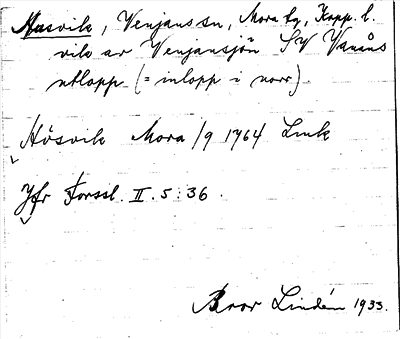 Næsvik, Venjans sn, Mora tg, Kopp. l.
vik av Venjansjön SV Vanåns
utlopp (= inlopp i norr)
Hösvik Mora 1/9 1764 Link
Jfr Forssl. II. 5: 36.
Bror Lindén 1933.